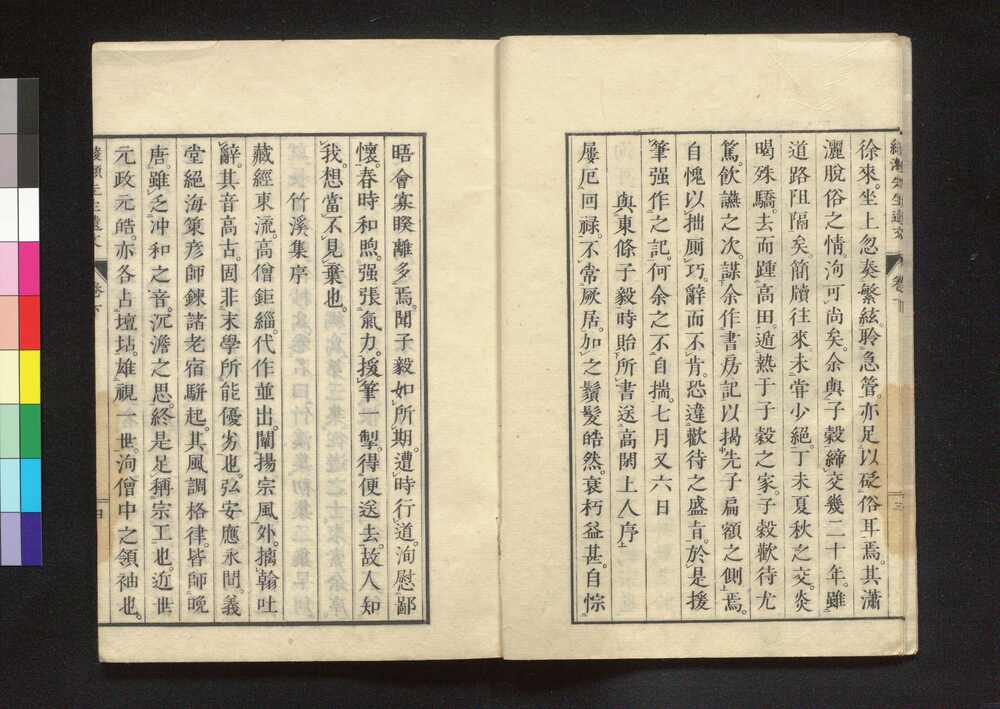 徐來。坐上忽奏繁絃。聆急管。亦足以砭俗耳焉。其瀟
灑脫俗之情。洵可尚矣。余與子穀締交幾二十年。雖
道路阻隔矣。簡牘往來未嘗少絕。丁未夏秋之交。炎
暍殊驕。去而踵高田。遁熱于子穀之家。子穀歡待尤
篤。飲讌之次。謀余作書房記以揭先子扁額之側焉。
自愧以拙厠巧。辭而不肯。恐違歡待之盛旨。於是援
筆强作之記。何余之不自揣。七月又六日
與東條子毅時貽所書送高閑上人序
屢厄回祿。不常厥居。加之鬚髮皓然。衰朽益甚。自悰
晤會寡睽離多焉。聞子毅如所期。遭時行道。洵慰鄙
懷。春時和煦。强張氣力。援筆一掣。得便送去。故人知
我。想當不見棄也。
竹溪集序
藏經東流。高僧鉅緇。代作並出。闡揚宗風。外摛翰吐
辭。其音高古。固非末學所能優劣也。弘安應永間。義
堂絕海策彥師鍊諸老宿駢起。其風調格律。皆師晚
唐。雖乏冲和之音。沉澹之思。終是足稱宗工也。近世
元政元皓。亦各占壇坫。雄視一世。洵僧中之領袖也。